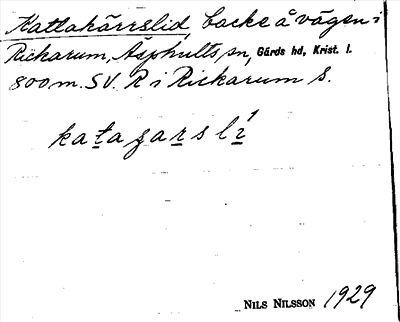 Kattakärrslid, backe å vägen i
Rickarum, Äsphults sn, Gärds hd, Krist. l.
800 m. SV. R i Rickarum S.
kataʒarsli
NILS NILSSON 1929